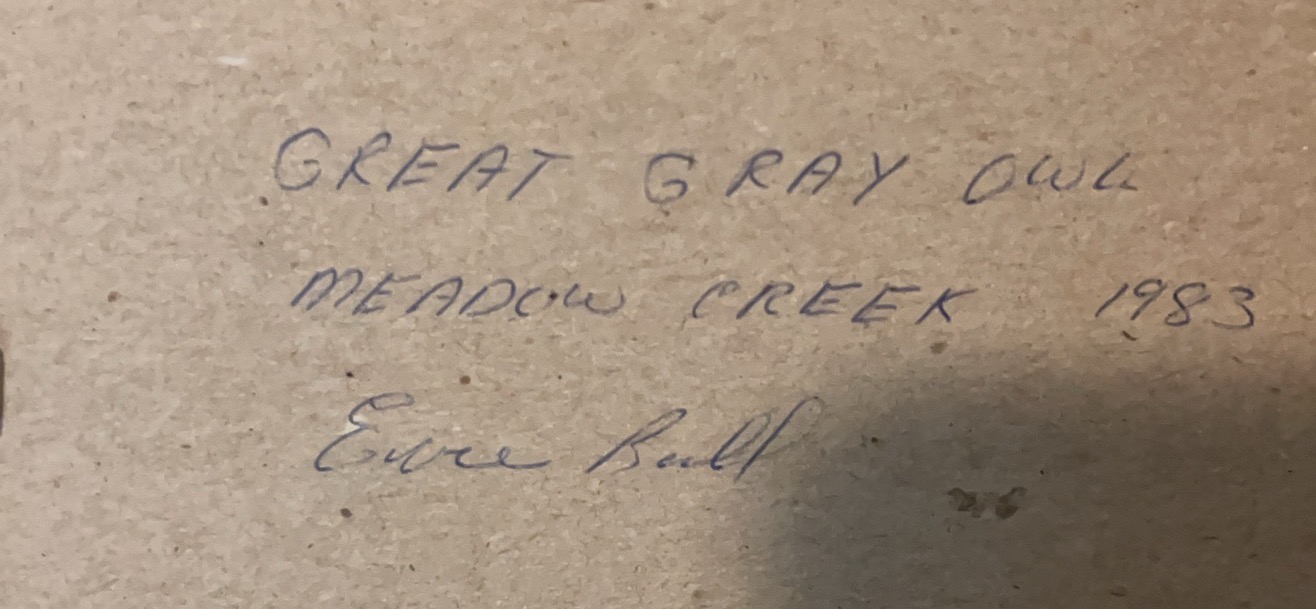 GREAT GRAY OWL
MEADOW CREEK 1983
Bull